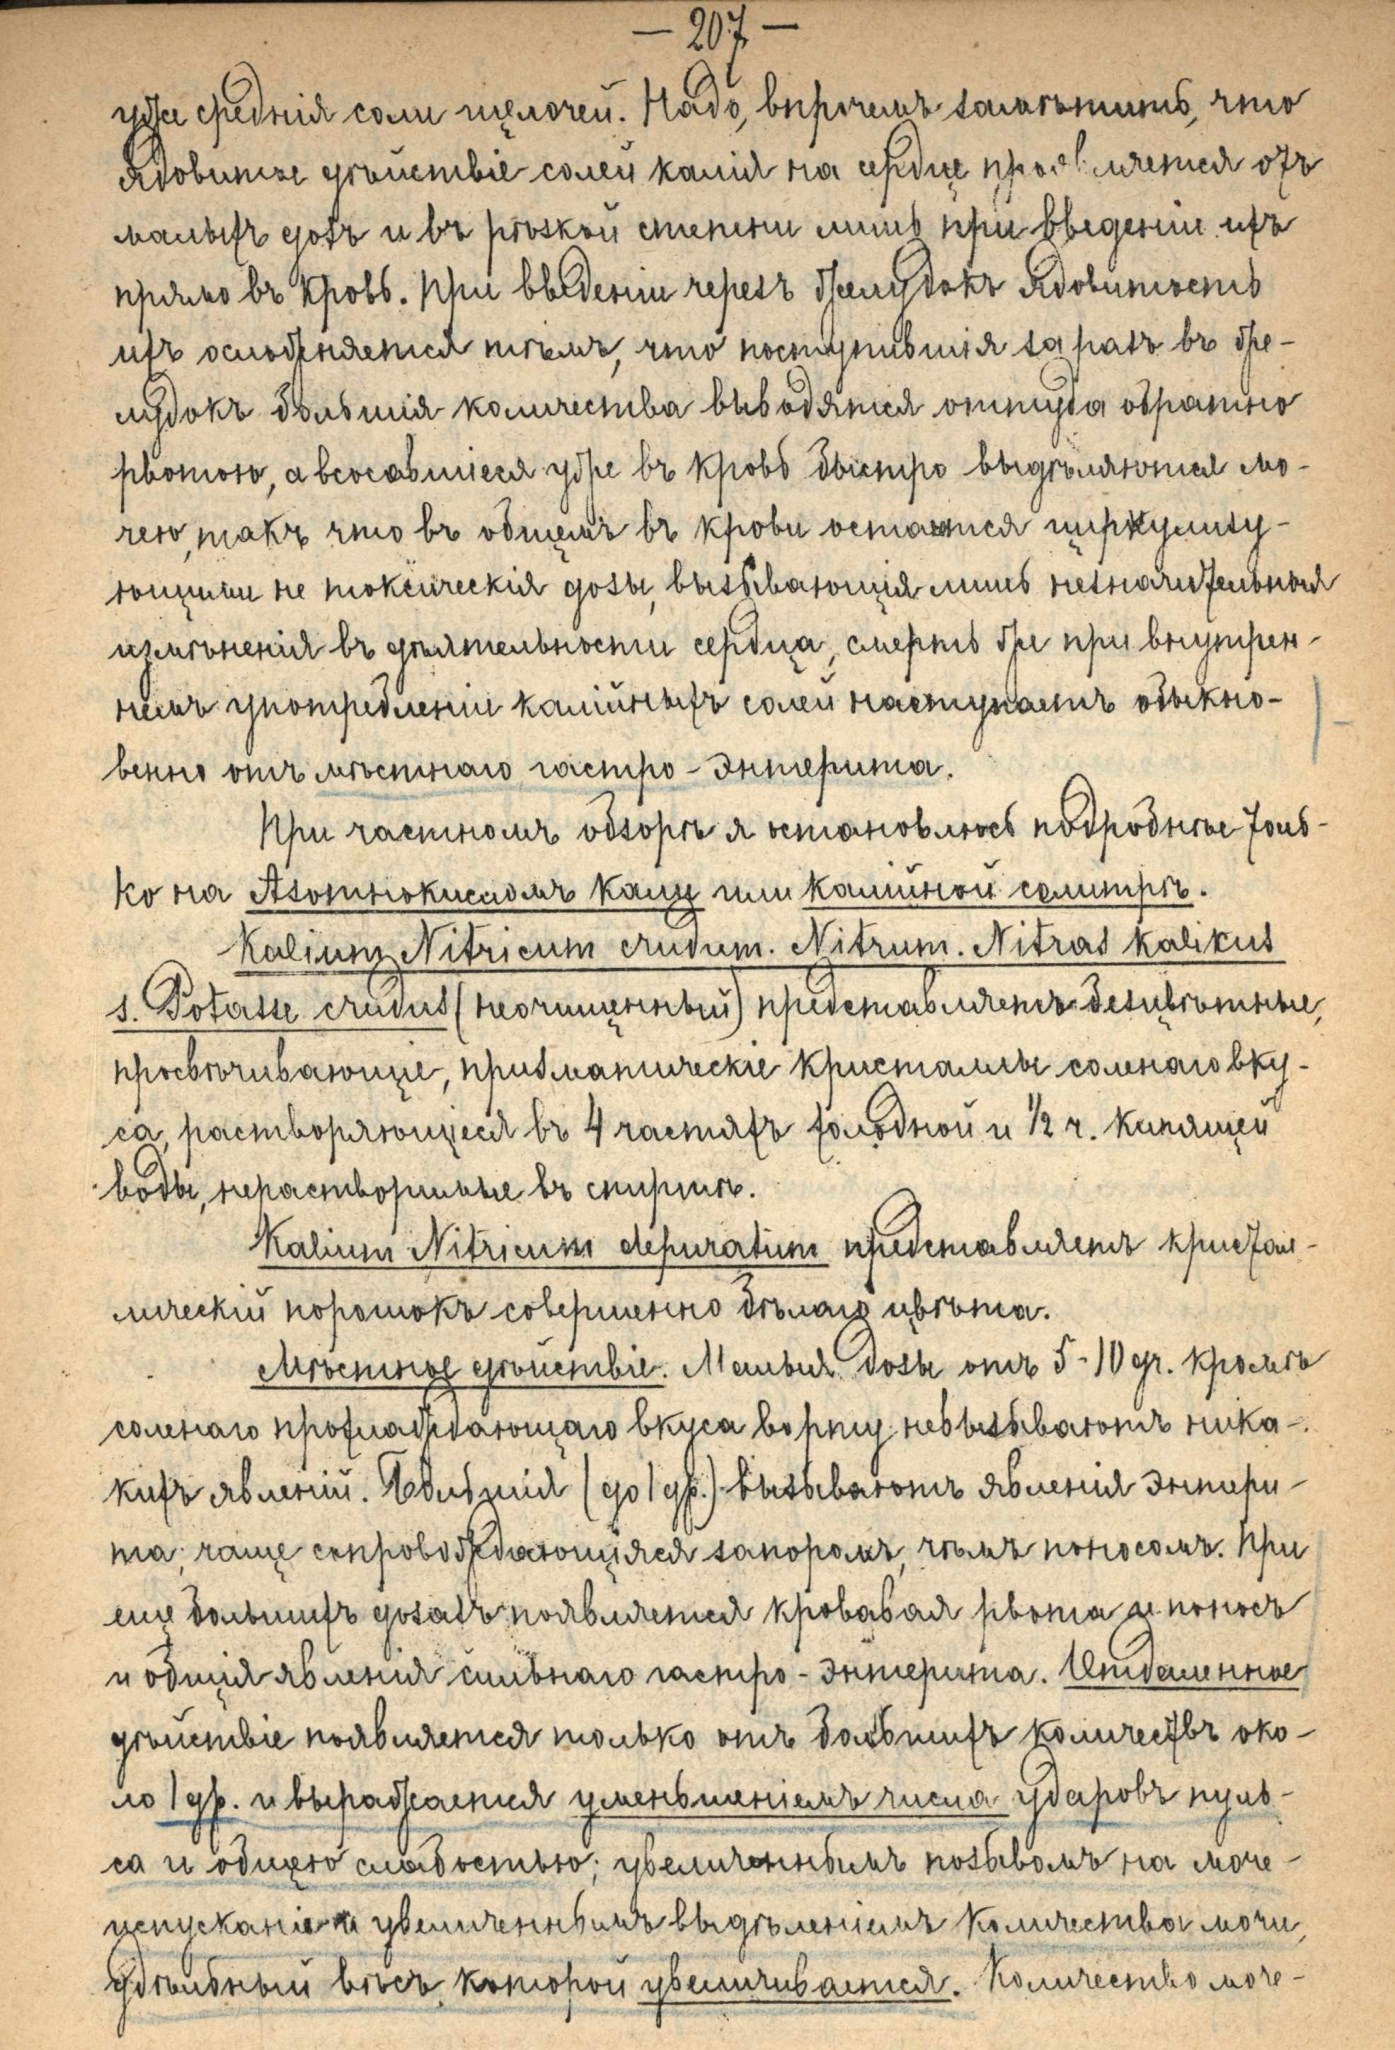 — 207 —
уже среднія соли щелочей. Надо, впрочемъ замѣтить, что
ядовитое дѣйствіе солей калія на сердце проявляется отъ
малыхъ дозъ и въ рѣзкой степени лишь при введеніи ихъ
прямо въ кровь. При введеніи черезъ желудокъ ядовитость
ихъ осложняется тѣмъ, что поступившія за разъ въ же-
лудокъ большія количества выводятся оттуда обратно
рвотою, а всосавшіеся уже въ кровь быстро выдѣляются мо-
чею, такъ что въ общемъ въ крови остаются циркулизу-
ющими не токсическія дозы, вызывающія лишь незначительныя
измѣненія въ дѣятельности сердца, смерть же при внутрен-
немъ употребленіи калійныхъ солей наступаетъ обыкно-
венно отъ мѣстнаго гастро-энтерита.
При частномъ обзорѣ я остановлюсь подробнѣе толь-
ко на Азотнокисломъ кали или калійной селитрѣ.
Kalium Nitricum crudum. Nitrum. Nitras kalikus
s. Potasse crudus (неочищенный) представляетъ безцвѣтные,
просвѣчивающіе, призматическіе кристаллы соленаго вку-
са, растворяющіеся въ 4 частяхъ холодной и 1/2 ч. кипящей
воды, нерастворимые въ спиртѣ.
Kalium Nitricum depuratum представляетъ кристал-
лическій порошокъ совершенно бѣлаго цвѣта.
Мѣстное дѣйствіе. Малыя дозы отъ 5-10 gr. кромѣ
соленаго прохлаждающаго вкуса во рту невызываютъ ника-
кихъ явленій. Большія (до 1 др.) вызываютъ явленія энтери-
та, чаще сопровождающіяся запоромъ, чѣмъ поносомъ. При
еще большихъ дозахъ появляется кровавая рвота и поносъ
и общія явленія сильнаго гастро-энтерита. Отдаленное
дѣйствіе появляется только отъ большихъ количествъ око-
ло 1 др. и выражается уменьшеніемъ числа ударовъ пуль-
са и общею слабостью; увеличеннымъ позывомъ на моче-
испусканіе и увеличеннымъ выдѣленіемъ количества мочи,
удѣльный вѣсъ которой увеличивается. Количество моче-